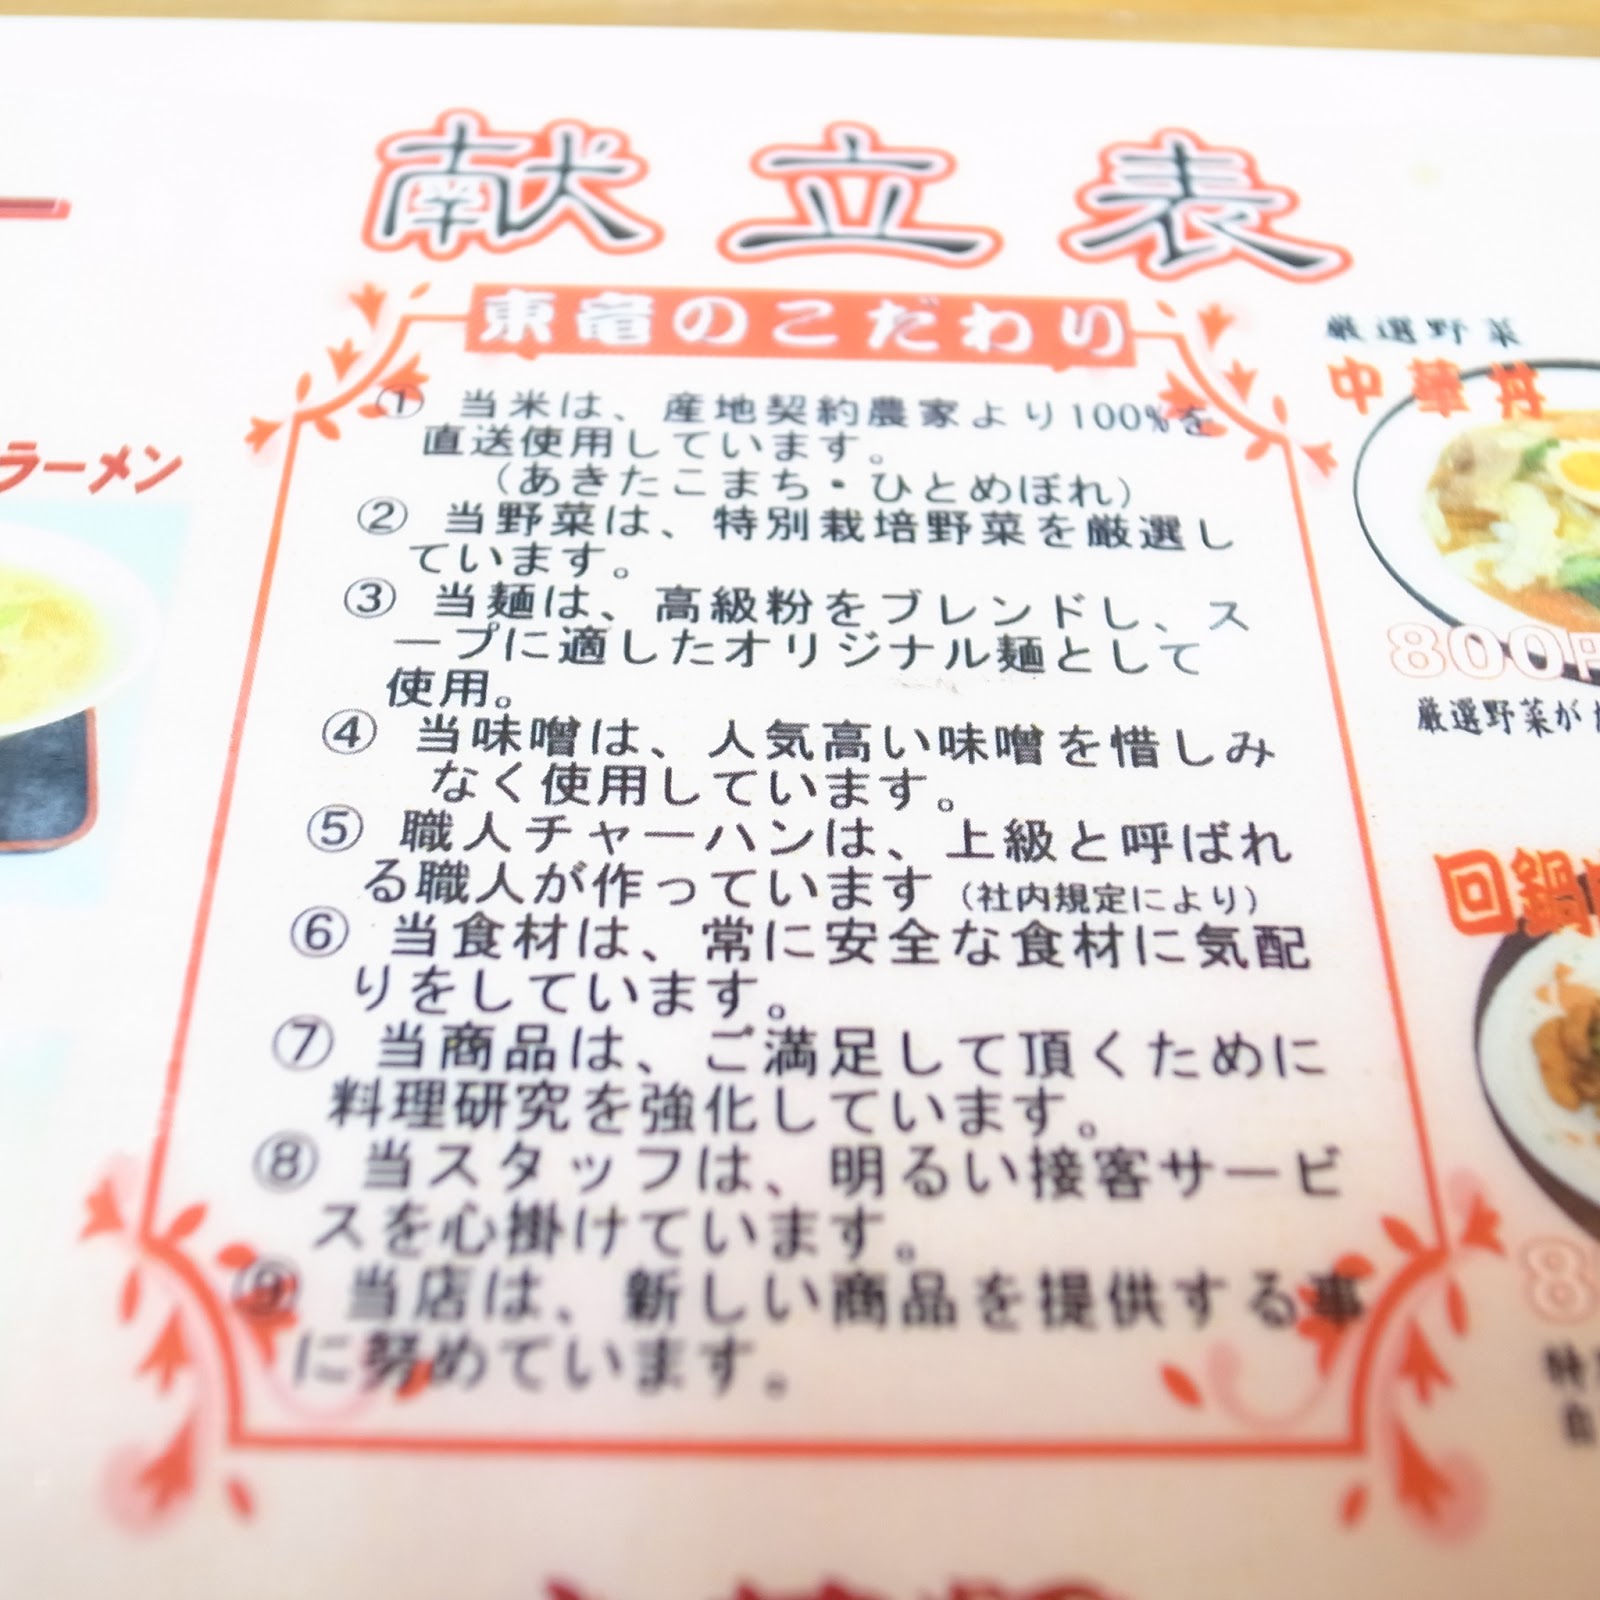 献立表
東竜のこだわり
① 当米は、産地契約農家より100%を
直送使用しています。
（あきたこまち・ひとめぼれ）
② 当野菜は、特別栽培野菜を厳選し
ています。
③ 当麺は、高級粉をブレンドし、ス
ープに適したオリジナル麺として
使用。
④ 当味噌は、人気高い味噌を惜しみ
なく使用しています。
⑤ 職人チャーハンは、上級と呼ばれ
る職人が作っています（社内規定により）
⑥ 当食材は、常に安全な食材に気配
りをしています。
⑦ 当商品は、ご満足して頂くために
料理研究を強化しています。
⑧ 当スタッフは、明るい接客サービ
スを心掛けています。
⑨ 当店は、新しい商品を提供する事
に努めています。
ラーメン
厳選野菜
中華丼
800円
厳選野菜が
回鍋
8